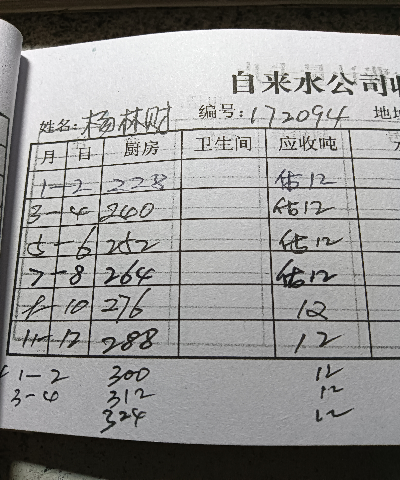 自来水公司收
姓名: 杨林财 编号: 172094 地址
月 日 厨房 卫生间 应收吨
1-2 228 估12
3-4 240 估12
5-6 252 估12
7-8 264 估12
9-10 276 12
11-12 288 12
1-2 300 12
3-4 312 12
324 12